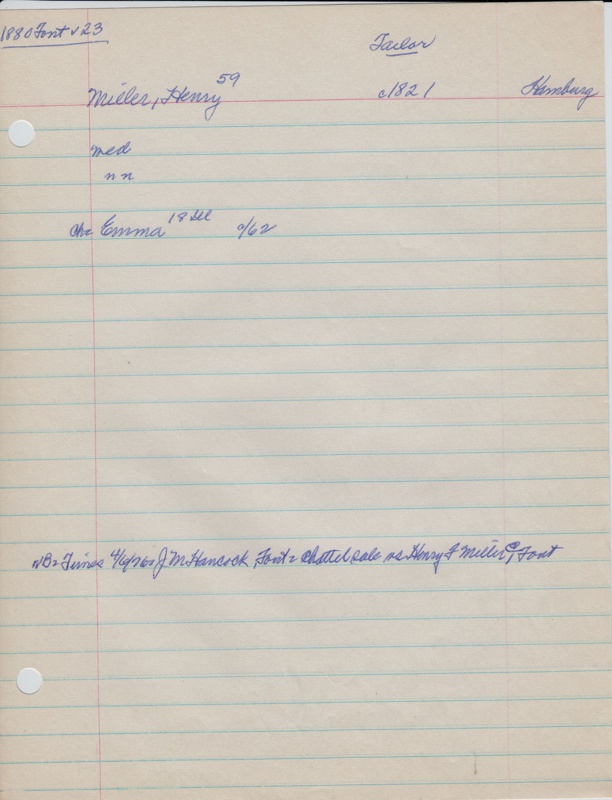 1880 Font v 23
Tailor
Miller, Henry 59 c1821 Hamburg
med
nn
ch= Emma 18 Ill c/62
NB= Times 4/6/76= J M Hancock, Font = Chattel sale vs Henry F Miller, Font